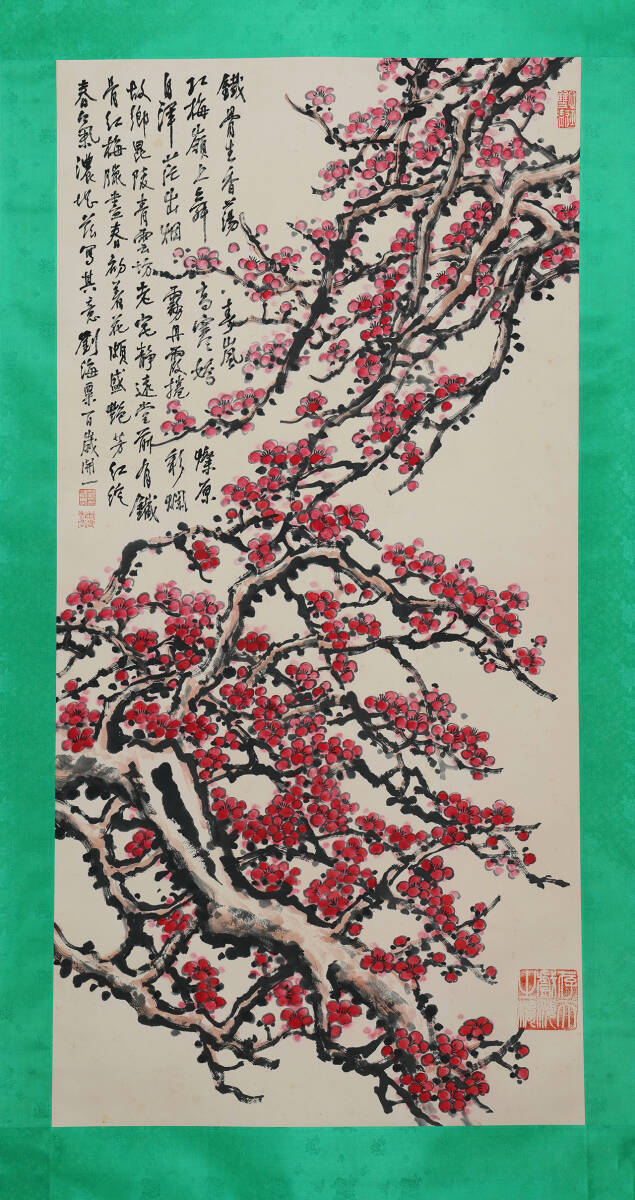 鐵骨生香蕩春嵐
紅梅嶺上舞高寒
自渾茫出烟霧丹霞捲彩爛
故鄉毘陵青雲坊老宅靜遠堂前有鐵
骨紅梅臘盡春初着花頗盛艷芳紅綻
春氣濃寫其意劉海粟百歲開一